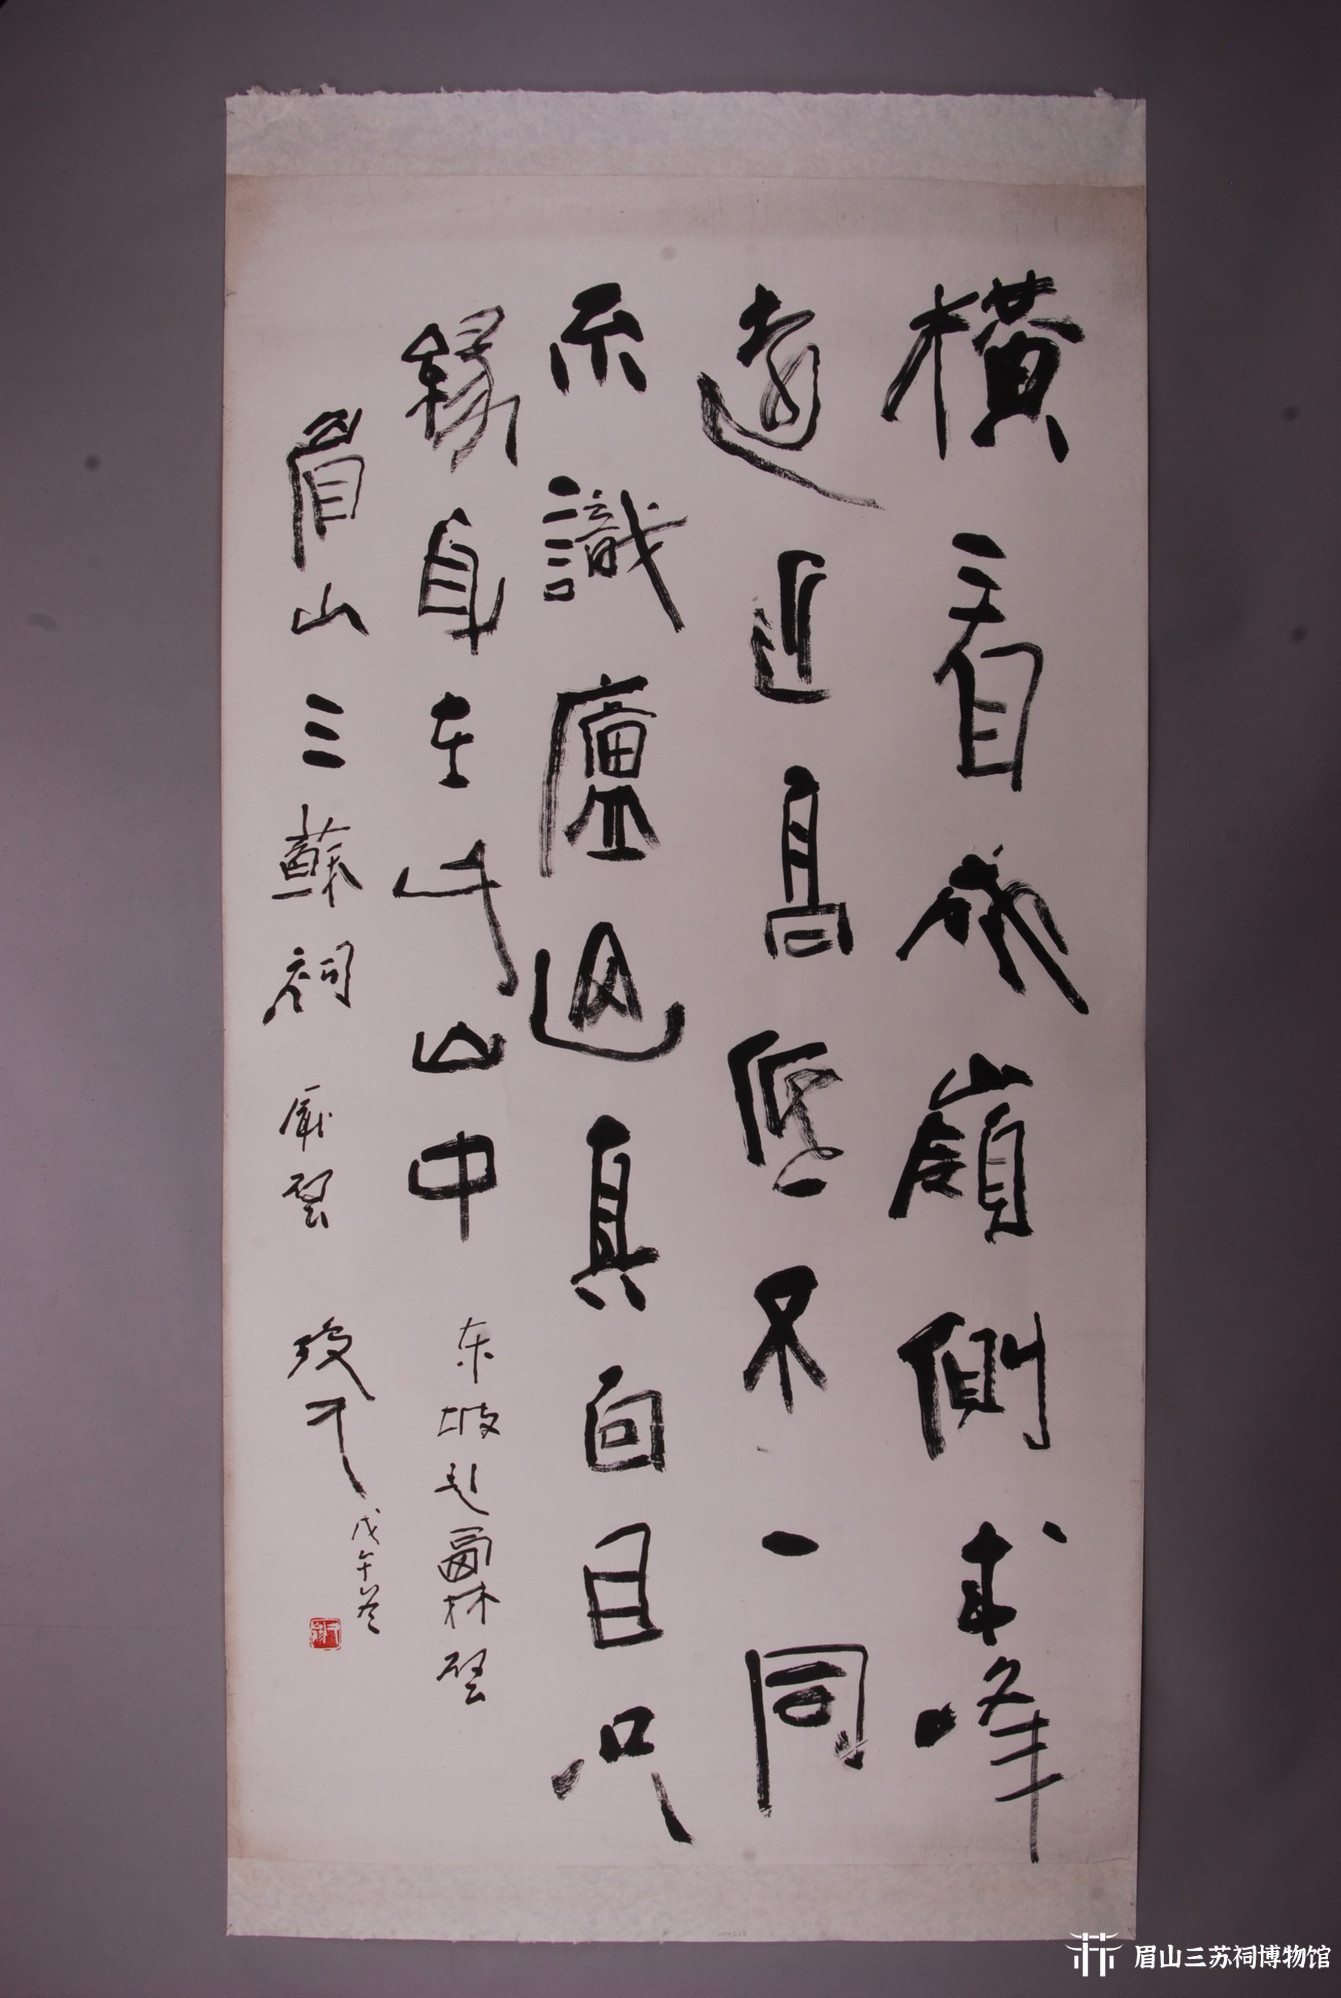 橫看成嶺側成峰
遠近高低不一同
不識廬山真面目只
緣身在此山中
东坡題西林壁
眉山三蘇祠 壁
戊午
眉山三苏祠博物馆